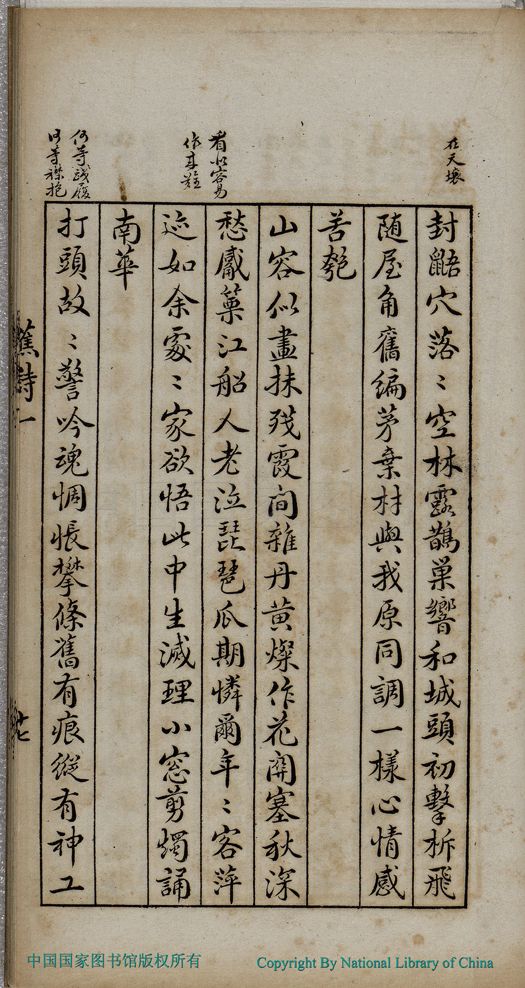 在天壤
看似容易
作來難
何等議廢
何等襟抱
封鼯穴落〻空林露鵲巢響和城頭初擊柝飛
随屋角舊編茅棄材與我原同調一樣心情感
苦匏
山容似畫抹殘霞间雜丹黄燦作花關塞秋深
愁慼篥江船人老泣琵琶瓜期憐爾年〻客萍
迹如余處〻家欲悟此中生滅理小窓剪燭誦
南華
打頭故〻警吟魂惆悵攀條舊有痕縱有神工
蕉詩一
中国国家图书馆版权所有 Copyright By National Library of China